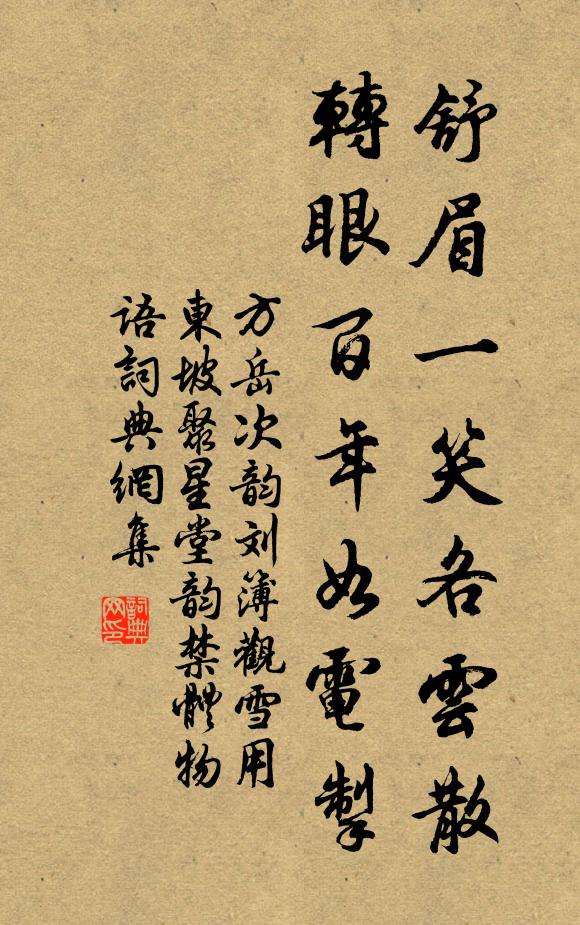 舒眉一笑各雲散
轉眼百年如電掣
方岳次韵刘簿觀雪用
東坡聚星堂韵禁體物
语詞典網集
詞典
网印